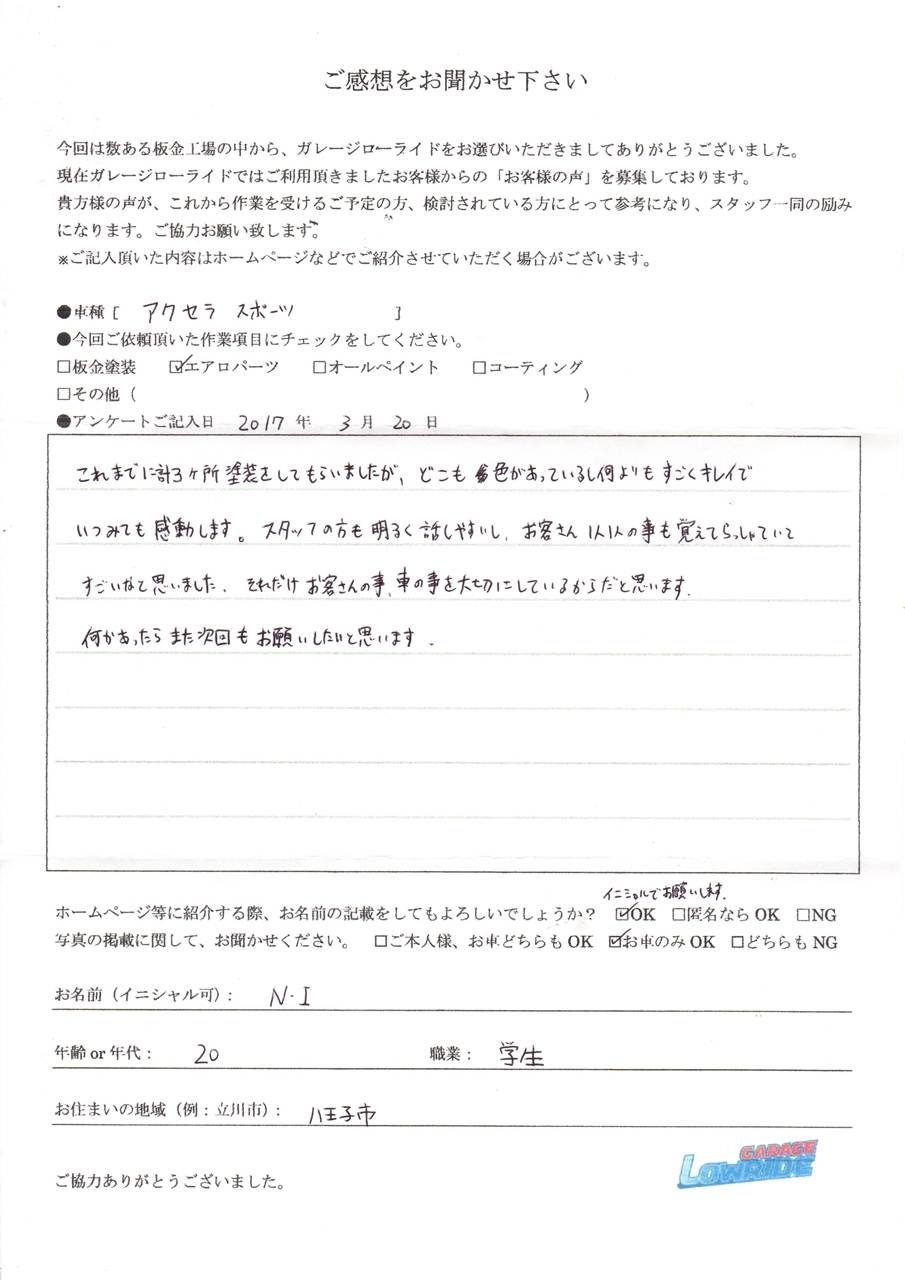 ご感想をお聞かせ下さい
今回は数ある板金工場の中から、ガレージローライドをお選びいただきましてありがとうございました。
現在ガレージローライドではご利用頂きましたお客様からの「お客様の声」を募集しております。
貴方様の声が、これから作業を受けるご予定の方、検討されている方にとって参考になり、スタッフ一同の励み
になります。ご協力お願い致します。
※ご記入頂いた内容はホームページなどでご紹介させていただく場合がございます。
●車種 [ アクセラ スポーツ ]
●今回ご依頼頂いた作業項目にチェックをしてください。
□板金塗装 ☑エアロパーツ □オールペイント □コーティング
□その他 ( )
●アンケートご記入日 2017 年 3 月 20 日
これまでに計3ヶ所塗装をしてもらいましたが、どこも色があっているし何よりもすごくキレイで
いつみても感動します。スタッフの方も明るく話しやすいし、お客さん1人1人の事も覚えてらっしゃていて
すごいなと思いました、それだけお客さんの事、車の事を大切にしているからだと思います。
何かあったらまた次回もお願いしたいと思います.
イニシャルでお願いします.
ホームページ等に紹介する際、お名前の記載をしてもよろしいでしょうか? ☑OK □匿名なら OK □NG
写真の掲載に関して、お聞かせください。 □ご本人様、お車どちらも OK ☑お車のみ OK □どちらも NG
お名前(イニシャル可): N・I
年齢 or 年代: 20 職業: 学生
お住まいの地域(例:立川市): 八王子市
GARAGE
LOWRIDE
ご協力ありがとうございました。